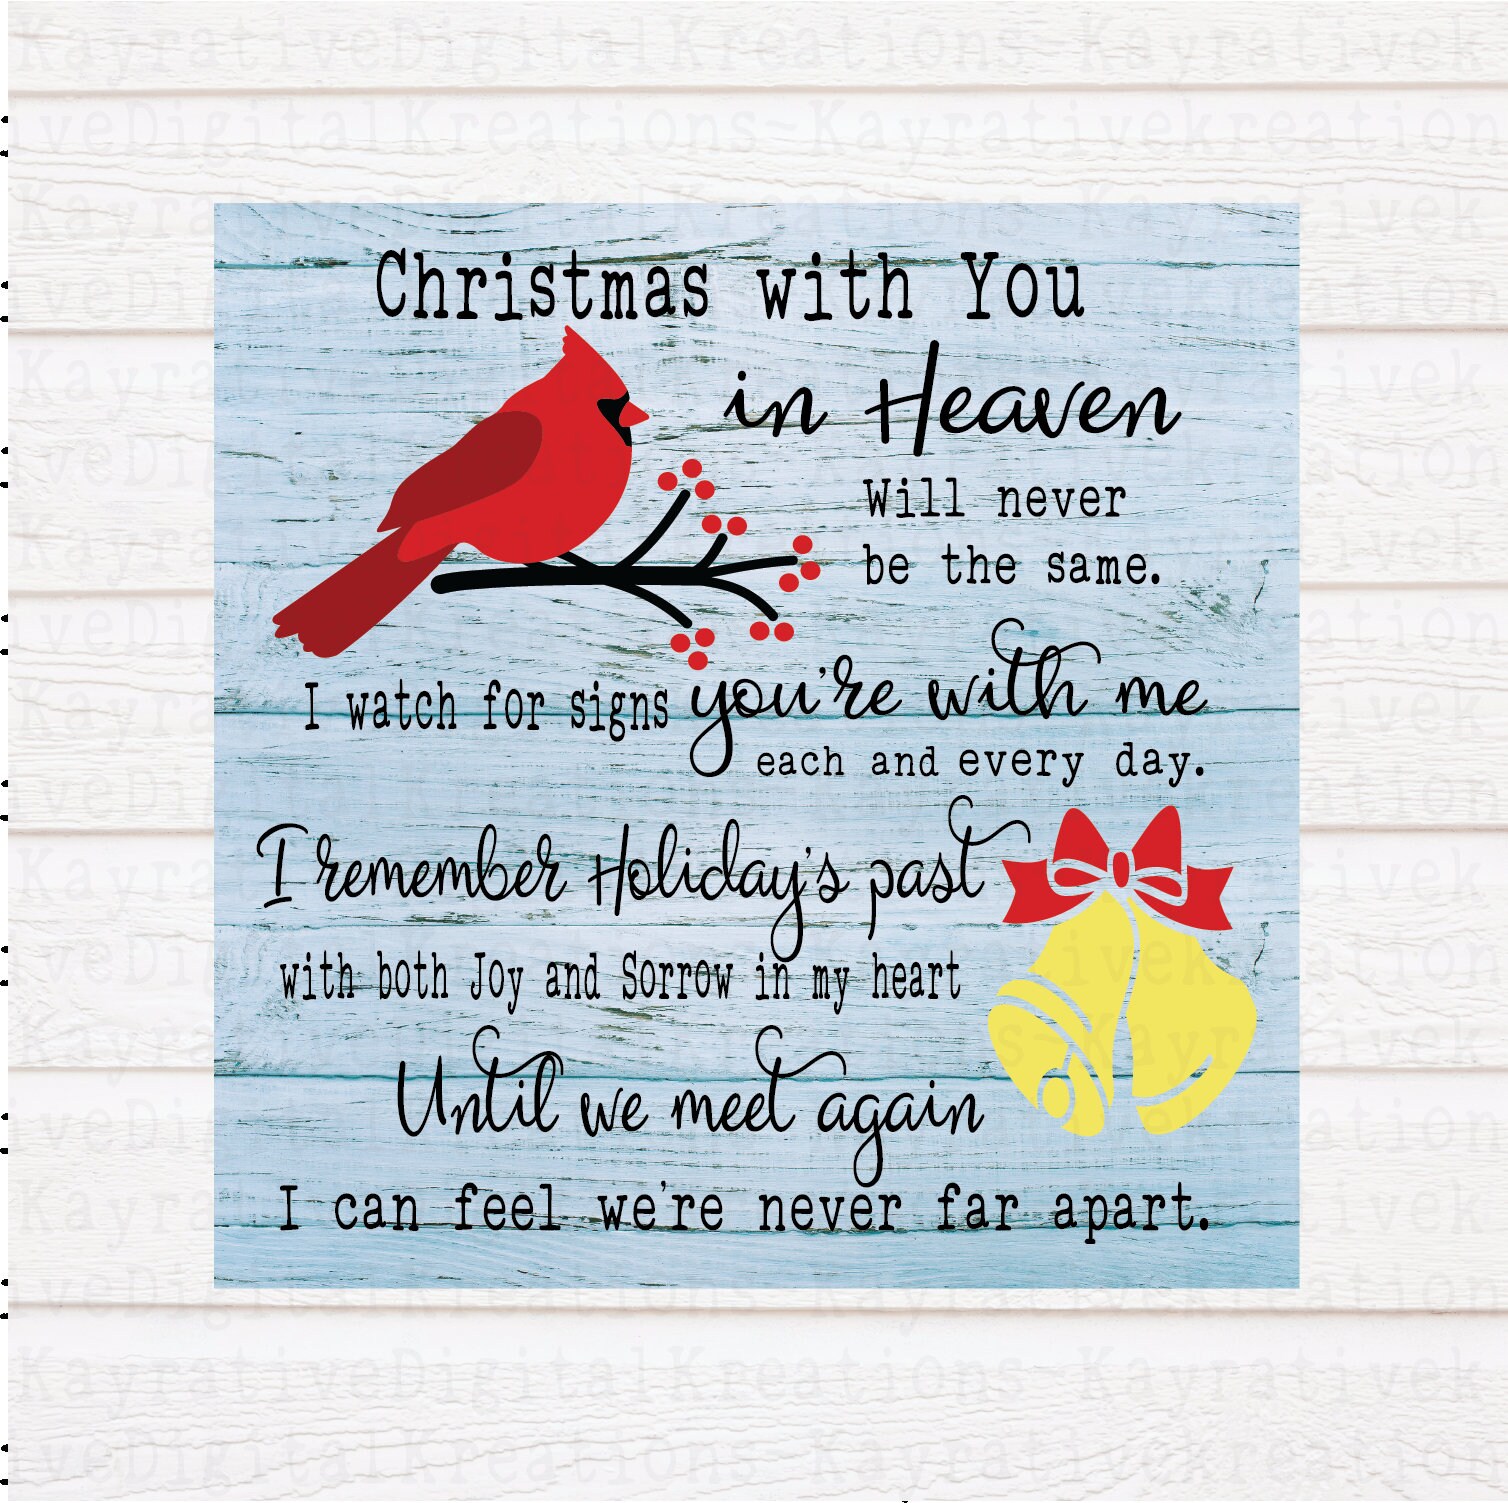 KayrativeDigitalKreations~Kayrativek
iveDigitalKreations~Kayrativekreation
Christmas with You
in Heaven
Will never
be the same.
I watch for signs you're with me
each and every day.
I remember Holiday's past
with both Joy and Sorrow in my heart
Until we meet again
I can feel we're never far apart.
KayrativeDigitalKreations~Kayrativek
iveDigitalKreations~Kayrativekreation